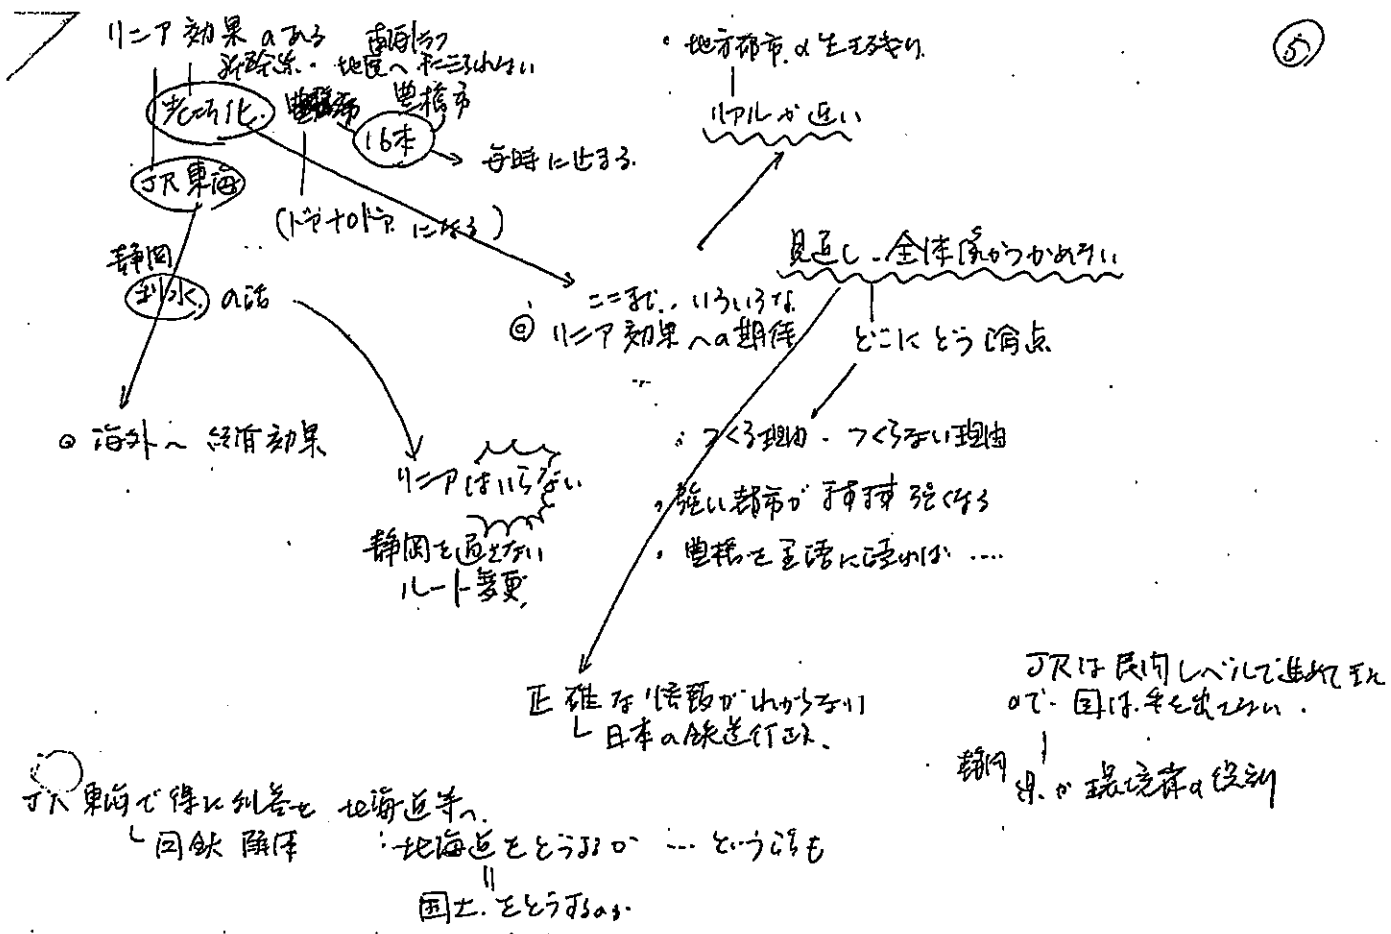 ⑤
リニア効果のある
新幹線・地震へ
豊橋市
16本
毎時に止まる
JR東海
(ドアtoドアになる)
静岡
利水の話
・地方都市の生き残り
リアルが近い
見通し・全体像がつかめない
ここまで、いろいろな
◎リニア効果への期待
どこにどう論点
◎海外へ経済効果
リニアはいらない
静岡を通さない
ルート変更
・つくる理由・つくらない理由
・強い都市がますます強くなる
・豊橋を主語に語れば ‥‥
正確な情報がわからない
日本の鉄道行政
JRは民間レベルで進めてきた
ので、国は手を出せない。
静岡県が環境省の役割
JR東海で得た利益を北海道等へ
国鉄解体
:北海道をどうするか … という話も
=
国土をどうするのか